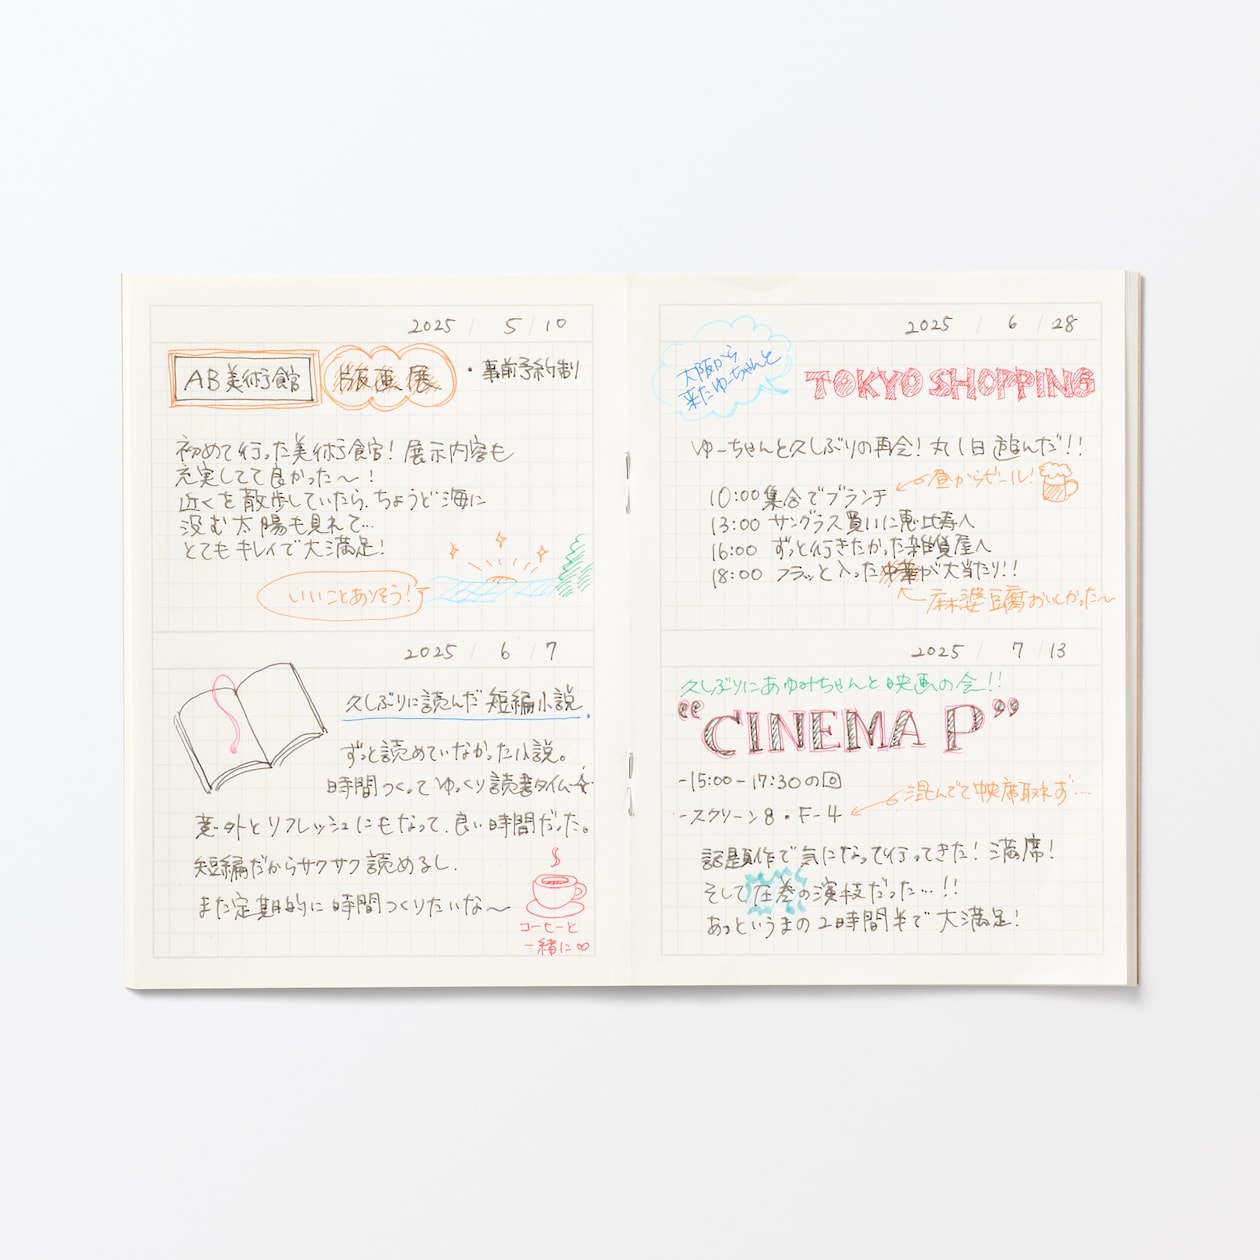 2025 / 5 / 10
AB美術館 版画展 ・事前予約制
初めて行った美術館！展示内容も
充実してて良かった〜！
近くを散歩していたら、ちょうど海に
沈む太陽も見れて…
とてもキレイで大満足！
いいことありそう！
2025 / 6 / 7
久しぶりに読んだ短編小説。
ずっと読めていなかった小説。
時間つくってゆっくり読書タイム☆
意外とリフレッシュにもなって、良い時間だった。
短編だからサクサク読めるし、
また定期的に時間つくりたいな〜
コーヒーと
一緒に∞
2025 / 6 / 28
大阪から
来たゆーちゃんと
TOKYO SHOPPING
ゆーちゃんと久しぶりの再会！丸1日遊んだ！！
昼からビール！
10:00 集合でブランチ
13:00 サングラス買いに恵比寿へ
16:00 ずっと行きたかった雑貨屋へ
18:00 フラッと入った中華が大当たり！！
麻婆豆腐おいしかった〜
2025 / 7 / 13
久しぶりにあゆみちゃんと映画の会！！
“CINEMA P”
-15:00-17:30の回
混んでて中央席取れず…
-スクリーン8・F-4
話題作で気になって行ってきた！満席！
そして圧巻の演技だった…！！
あっというまの2時間半で大満足！